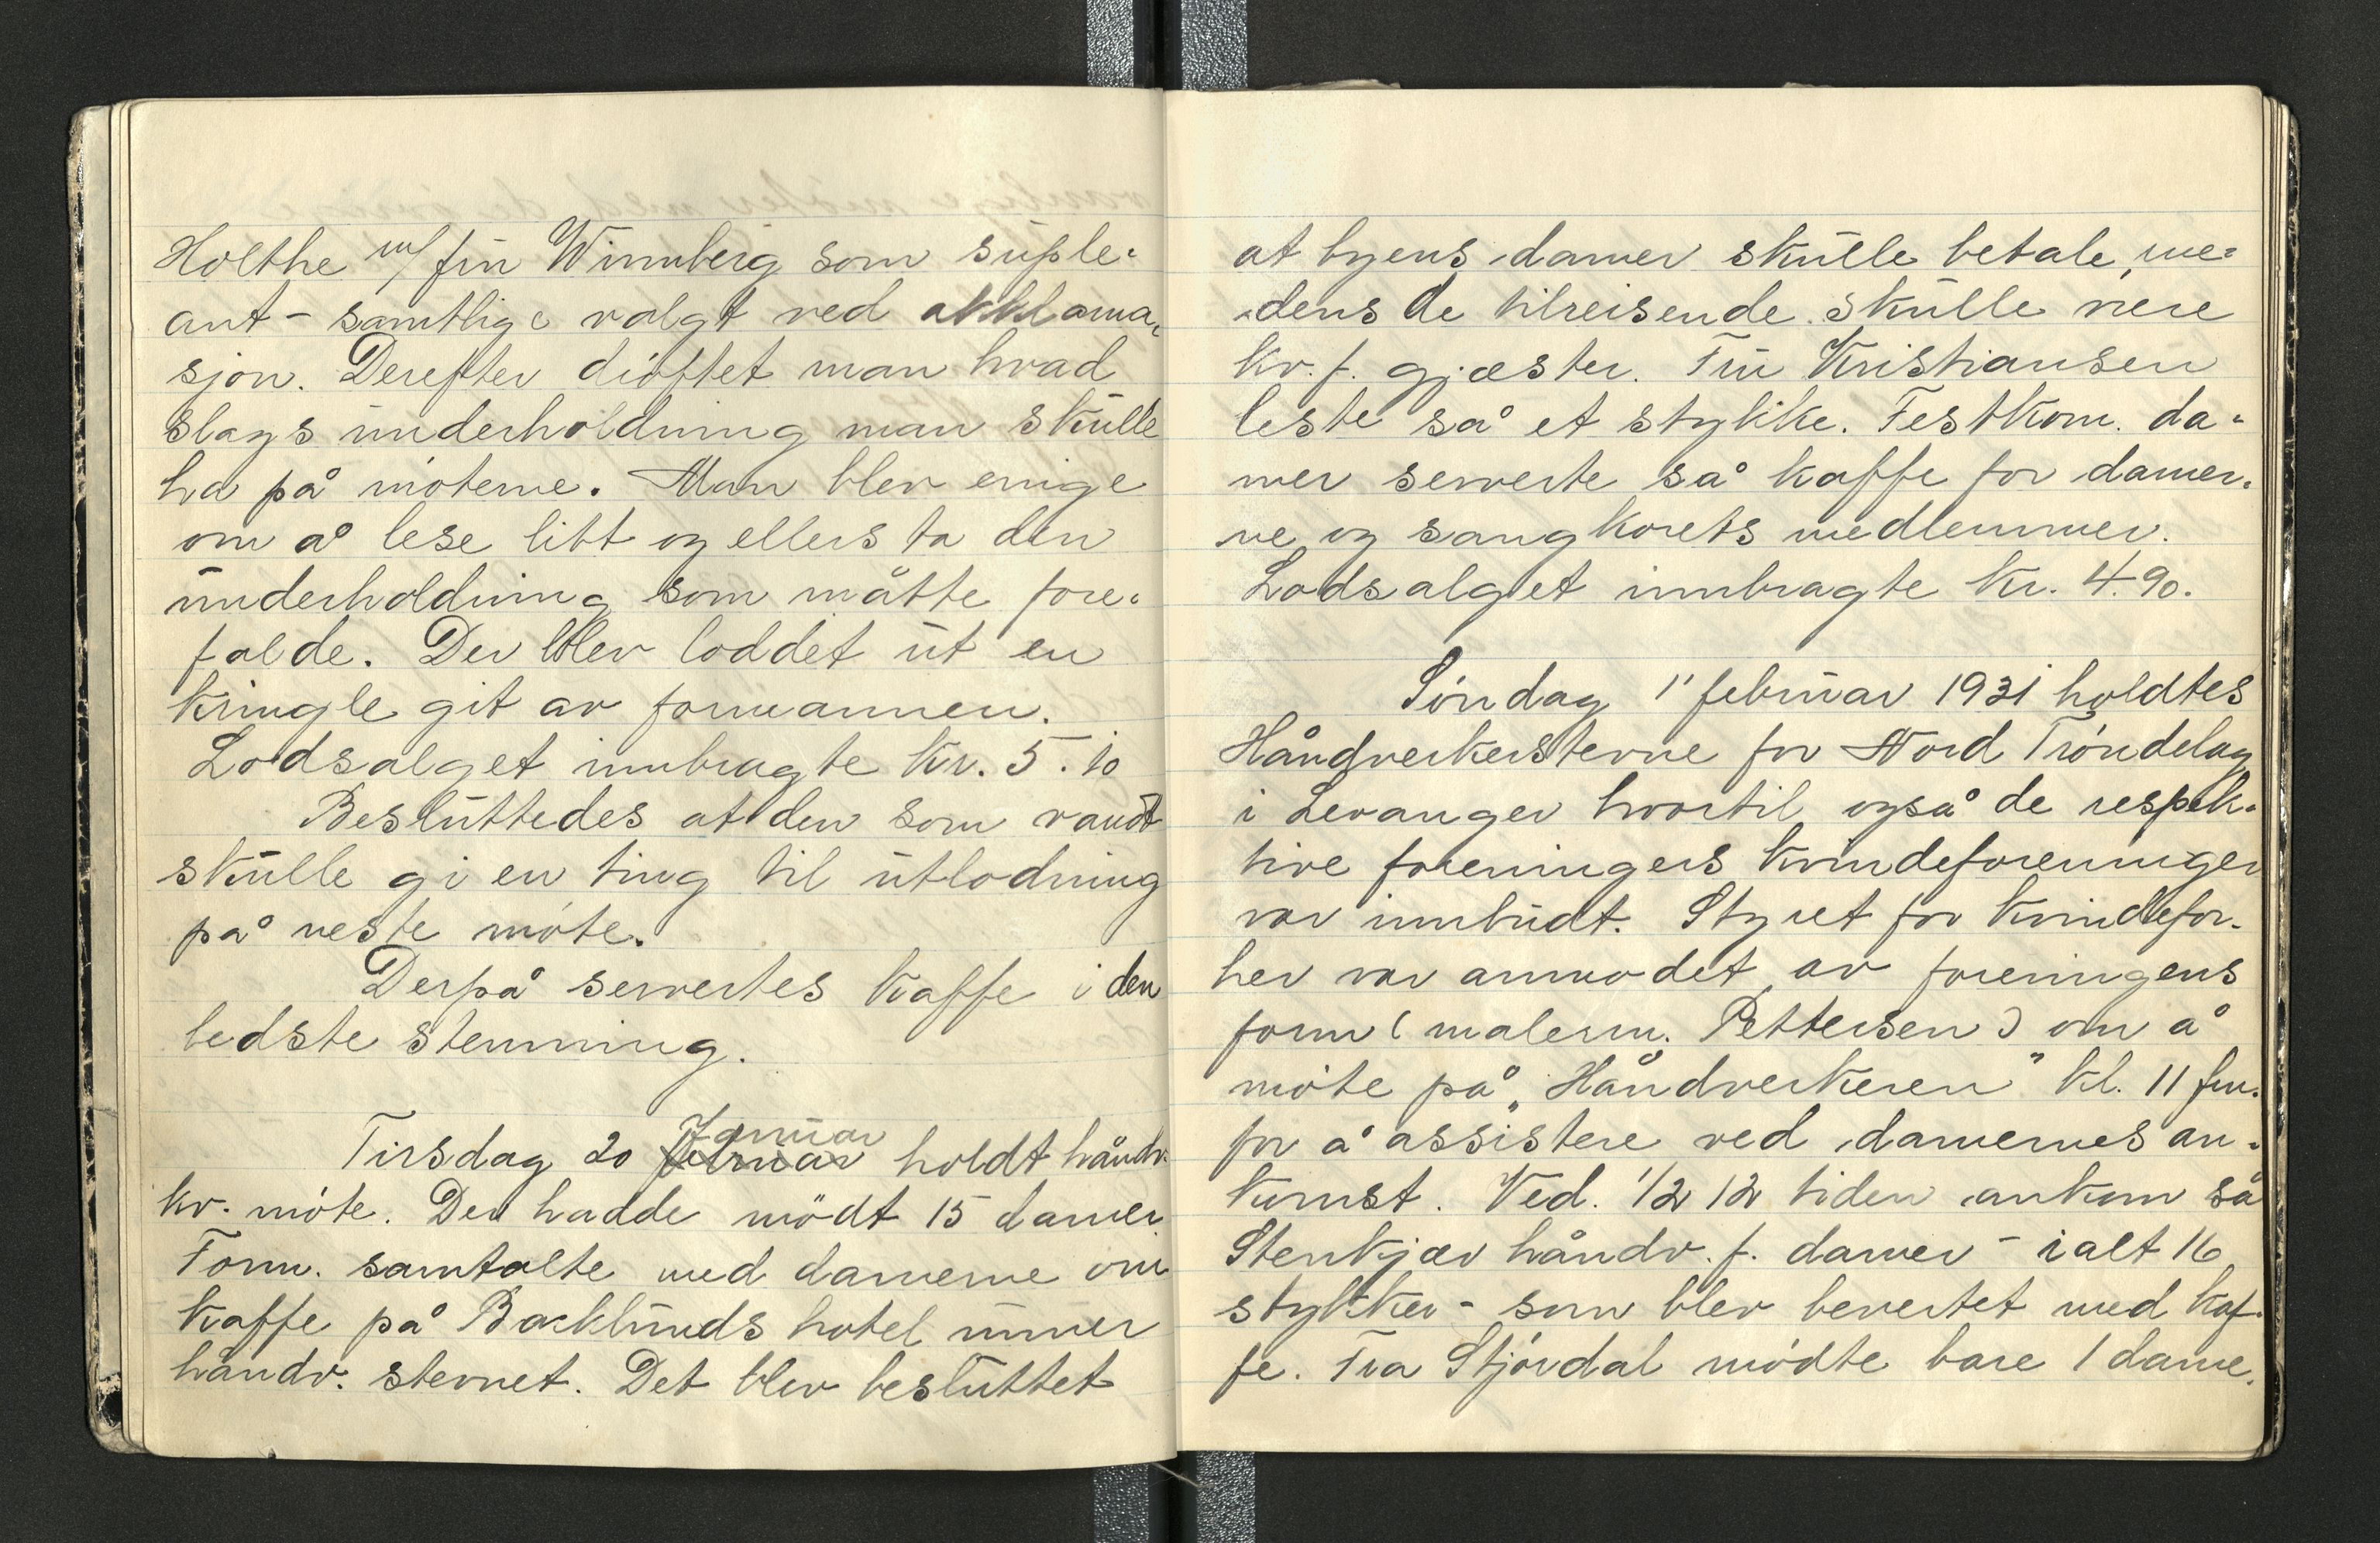 Holthe m/ fru Winnberg som suple-
ant - samtlige valgt ved akklama-
sjon. Derefter drøftet man hvad
slags underholdning man skulle
ha på møterne. Man blev enige
om å lese litt og ellers ta den
underholdning som måtte fore-
falde. Der blev loddet ut en
kringle git av formannen.
Lodsalget innbragte kr. 5.10
Besluttedes at den som vandt
skulle gi en ting til utlodning
på neste møte.
Derpå servertes kaffe i den
bedste stemning.
Tirsdag 20 februar Januar holdt håndv.
kv. møte. Der hadde mödt 15 damer
Form. samtalte med damerne om
kaffe på Backlunds hotel under
håndv. stevnet. Det blev besluttet
at byens damer skulle betale, me-
dens de tilreisende skulle være
kv. f. gjæster. Fru Kristiansen
leste så et stykke. Festkom. da-
mer serverte så kaffe for damer-
ne og sangkorets medlemmer.
Lodsalget innbragte kr. 4.90.
Søndag 1' februar 1931 holdtes
Håndverkerstevne for Nord Trøndelag
i Levanger hvortil også de respek-
tive foreningers kvindeforeninger
var innbudt. Styret for kvindefor.
her var anmodet av foreningens
form (malerm. Pettersen) om å
møte på „Håndverkeren" kl. 11 fm.
for å assistere ved damernes an-
komst. Ved 1/2 12 tiden ankom så
Stenkjær håndv. f. damer - ialt 16
stykker - som blev bevertet med kaf-
fe. Fra Stjørdal mødte bare 1 dame.